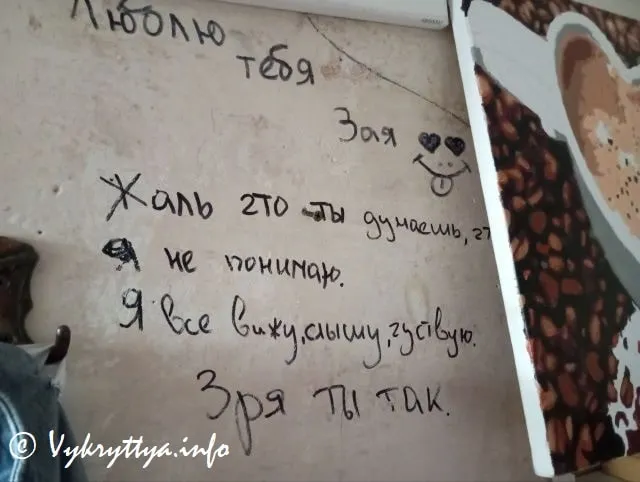 Люблю
тебя
Зая
Жаль что ты думаешь, чт
Я не понимаю.
Я все вижу, слышу, чуствую.
Зря ты так.
© Vykryttya.info